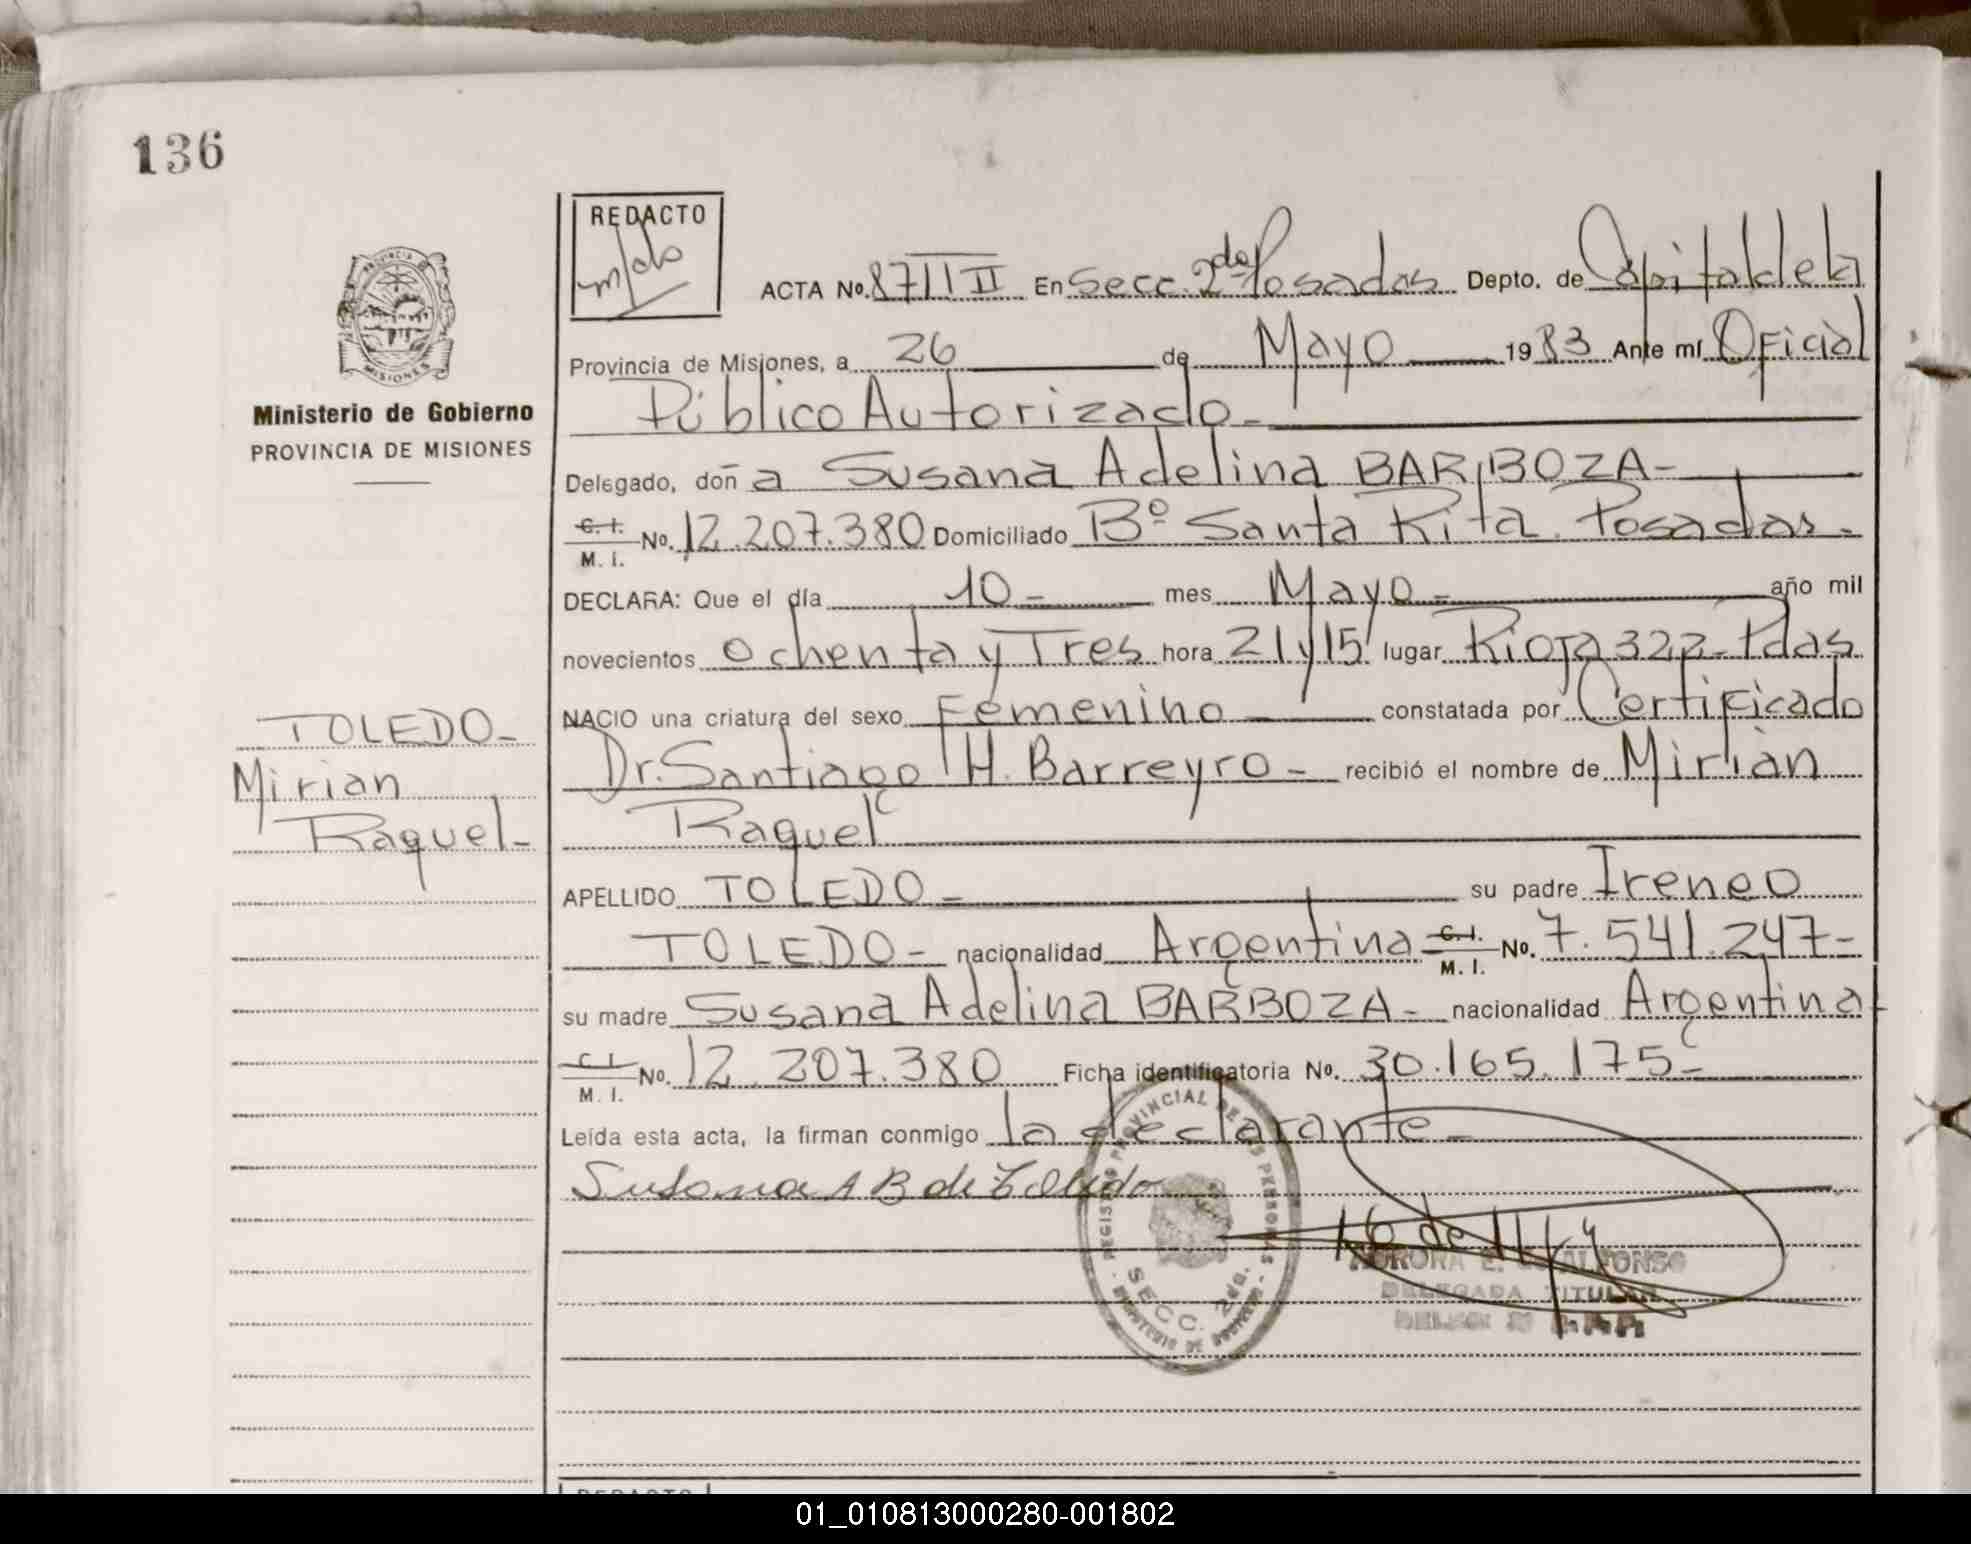 136
PROVINCIA DE
MISIONES
Ministerio de Gobierno
PROVINCIA DE MISIONES
TOLEDO-
Mirian
Raquel-
REDACTO
ACTA No. 871 T II En Secc. 2da Posadas Depto. de Capital de la
Provincia de Misiones, a 26 de Mayo 1983 Ante mí Oficial
Público Autorizado-
Delegado, doña Susana Adelina BARBOZA-
C. I.
M. I. No. 12.207.380 Domiciliado Bº Santa Rita. Posadas-
DECLARA: Que el día 10- mes Mayo- año mil
novecientos ochenta y Tres hora 21 y 15' lugar Rioja 322- Pdas
NACIO una criatura del sexo Femenino constatada por Certificado
Dr. Santiago H. Barreyro- recibió el nombre de Mirian
Raquel
APELLIDO TOLEDO- su padre Ireneo
TOLEDO- nacionalidad Argentina C. I.
M. I. No. 7.541.247-
su madre Susana Adelina BARBOZA- nacionalidad Argentina-
C. I.
M. I. No. 12.207.380 Ficha identificatoria No. 30.165.175-
Leída esta acta, la firman conmigo la declarante-
Susana A B de Toledo
REGISTRO PROVINCIAL DE LAS PERSONAS
SECC. 2da.
MINISTERIO DE GOBIERNO
AURORA E. ALFONSO
DELEGADA TITULAR
REDACTO
01_010813000280-001802